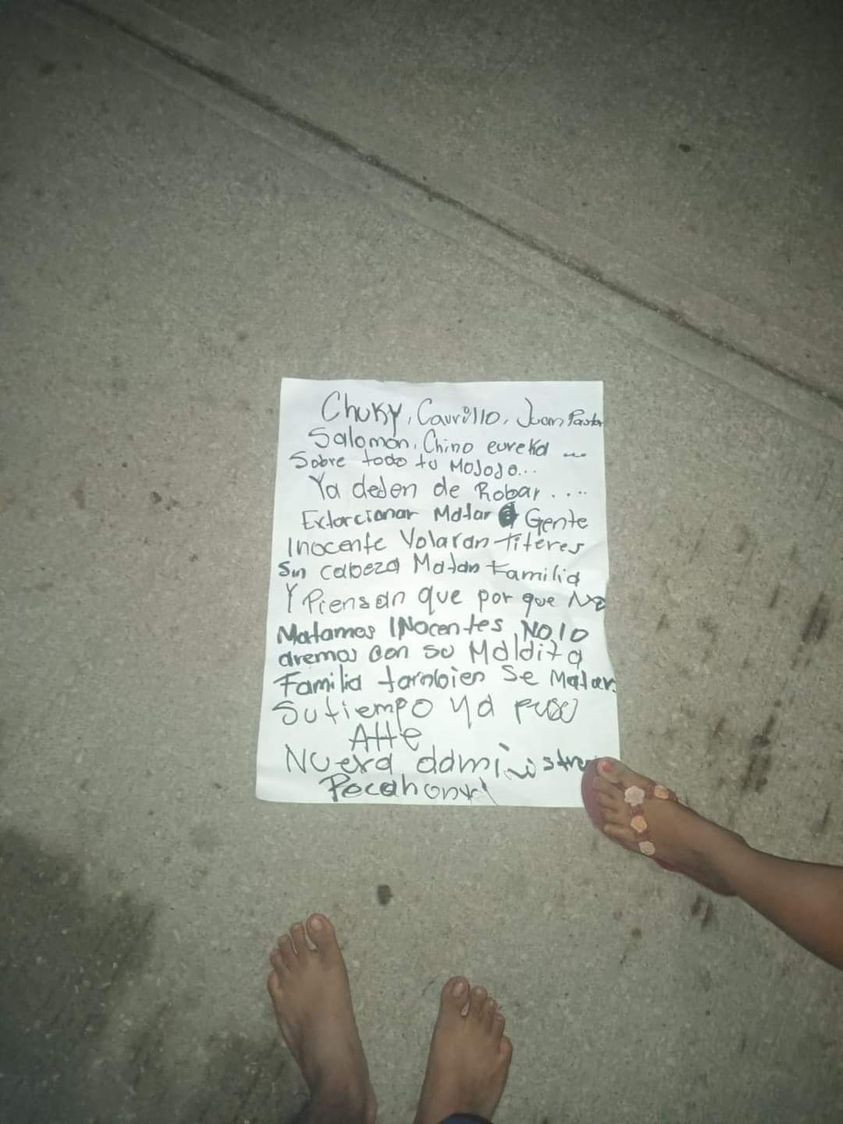 Chuky, Caurillo, Juan Pastor
Salomon, Chino eureka ...
Sobre todo tu Mojojo...
Ya dejen de Robar ....
Extorcionar Matar a Gente
Inocente Volaran titeres
Sin cabeza Matan familia
Y Piensan que por que No
Matamos INocentes No lo
aremos con su Maldita
Familia tambien Se Matar
Su tiempo ya
Atte
Nueva administra